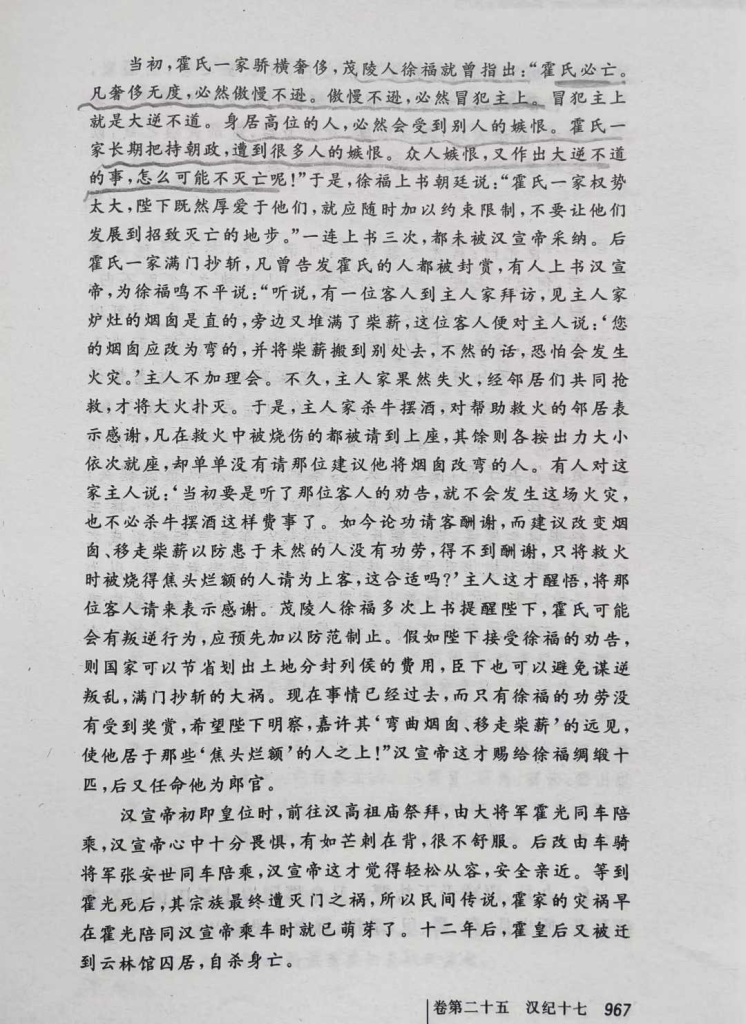 当初，霍氏一家骄横奢侈，茂陵人徐福就曾指出：“霍氏必亡。
凡奢侈无度，必然傲慢不逊。傲慢不逊，必然冒犯主上。冒犯主上
就是大逆不道。身居高位的人，必然会受到别人的嫉恨。霍氏一
家长期把持朝政，遭到很多人的嫉恨。众人嫉恨，又作出大逆不道
的事，怎么可能不灭亡呢！”于是，徐福上书朝廷说：“霍氏一家权势
太大，陛下既然厚爱于他们，就应随时加以约束限制，不要让他们
发展到招致灭亡的地步。”一连上书三次，都未被汉宣帝采纳。后
霍氏一家满门抄斩，凡曾告发霍氏的人都被封赏，有人上书汉宣
帝，为徐福鸣不平说：“听说，有一位客人到主人家拜访，见主人家
炉灶的烟囱是直的，旁边又堆满了柴薪，这位客人便对主人说：‘您
的烟囱应改为弯的，并将柴薪搬到别处去，不然的话，恐怕会发生
火灾。’主人不加理会。不久，主人家果然失火，经邻居们共同抢
救，才将大火扑灭。于是，主人家杀牛摆酒，对帮助救火的邻居表
示感谢，凡在救火中被烧伤的都被请到上座，其馀则各按出力大小
依次就座，却单单没有请那位建议他将烟囱改弯的人。有人对这
家主人说：‘当初要是听了那位客人的劝告，就不会发生这场火灾，
也不必杀牛摆酒这样费事了。如今论功请客酬谢，而建议改变烟
囱、移走柴薪以防患于未然的人没有功劳，得不到酬谢，只将救火
时被烧得焦头烂额的人请为上客，这合适吗？’主人这才醒悟，将那
位客人请来表示感谢。茂陵人徐福多次上书提醒陛下，霍氏可能
会有叛逆行为，应预先加以防范制止。假如陛下接受徐福的劝告，
则国家可以节省划出土地分封列侯的费用，臣下也可以避免谋逆
叛乱，满门抄斩的大祸。现在事情已经过去，而只有徐福的功劳没
有受到奖赏，希望陛下明察，嘉许其‘弯曲烟囱、移走柴薪’的远见，
使他居于那些‘焦头烂额’的人之上！”汉宣帝这才赐给徐福绸缎十
匹，后又任命他为郎官。
汉宣帝初即皇位时，前往汉高祖庙祭拜，由大将军霍光同车陪
乘，汉宣帝心中十分畏惧，有如芒刺在背，很不舒服。后改由车骑
将军张安世同车陪乘，汉宣帝这才觉得轻松从容，安全亲近。等到
霍光死后，其宗族最终遭灭门之祸，所以民间传说，霍家的灾祸早
在霍光陪同汉宣帝乘车时就已萌芽了。十二年后，霍皇后又被迁
到云林馆囚居，自杀身亡。
卷第二十五 汉纪十七 967